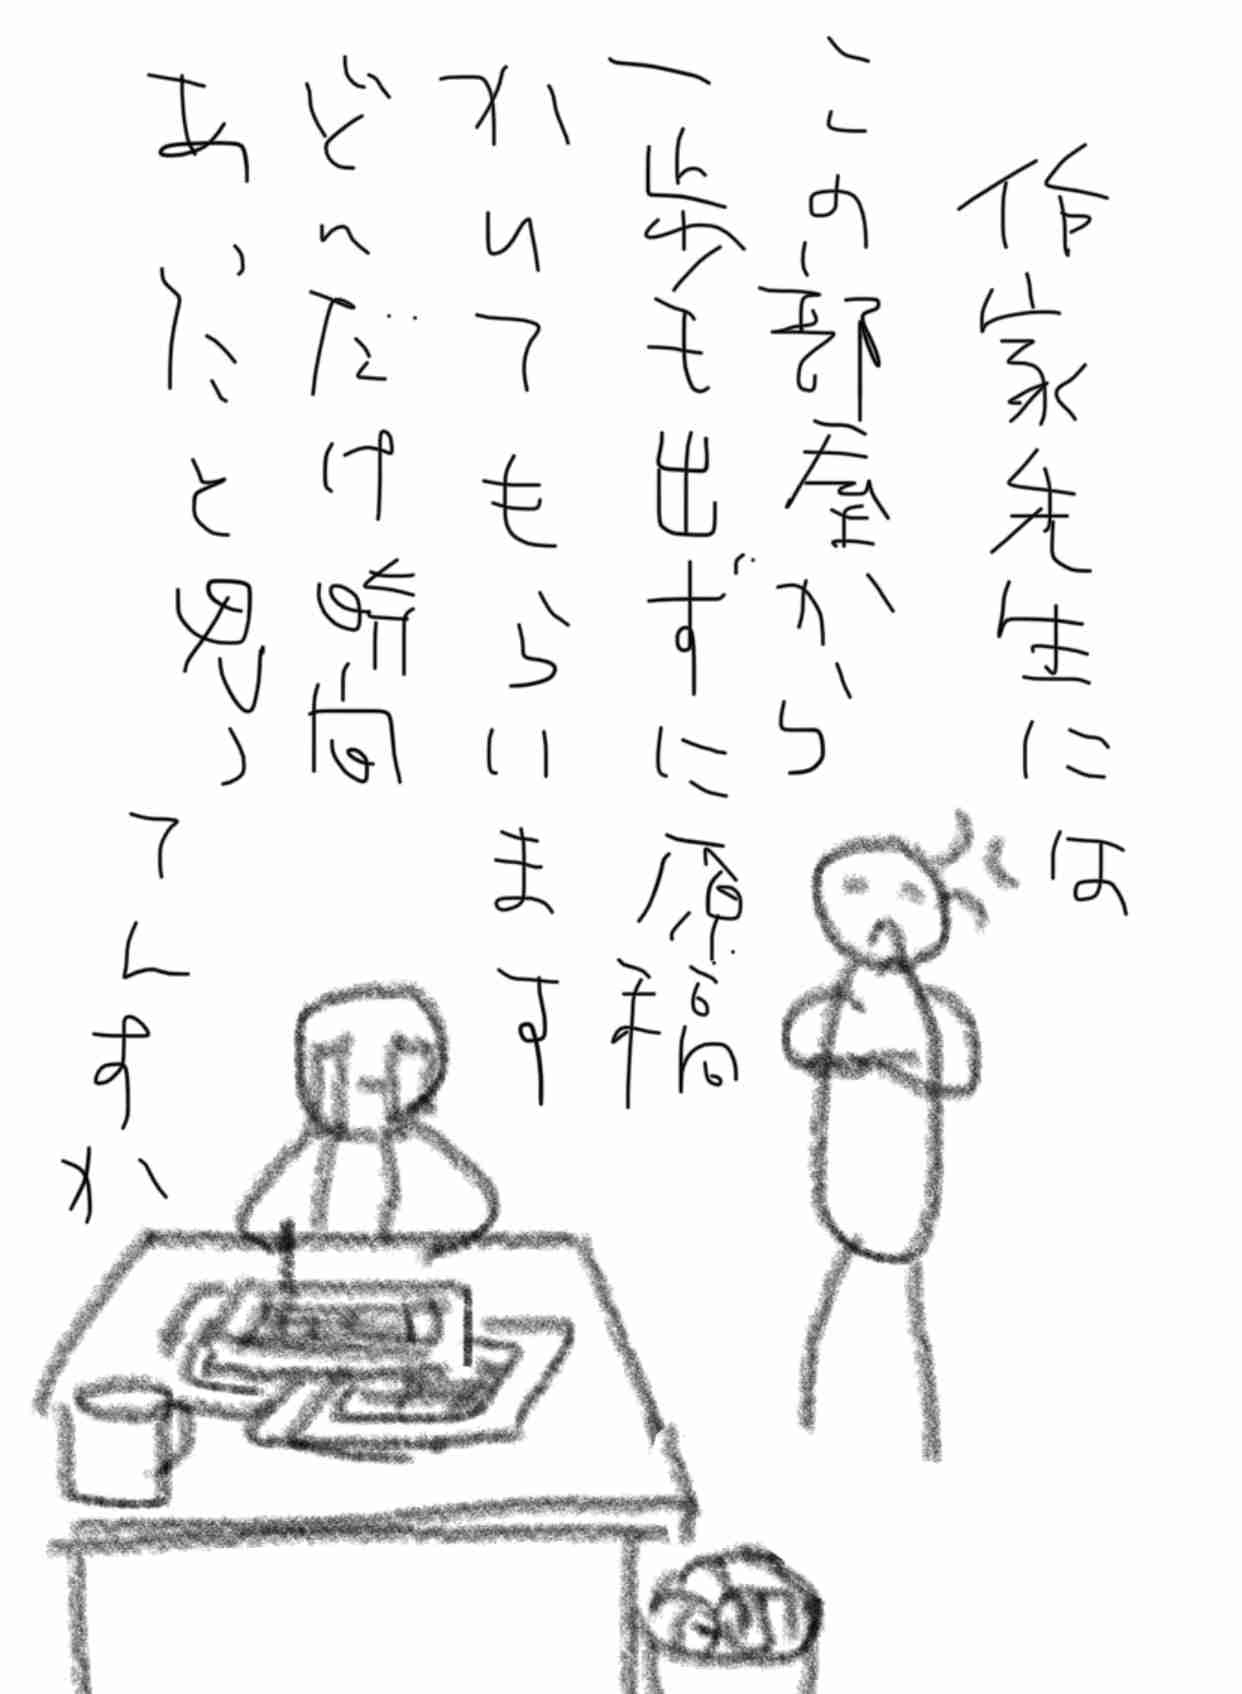 作家先生には
この部屋から
一歩も出ずに原稿
かいてもらいます
どんだけ締め
あいだと思っ
てんすか